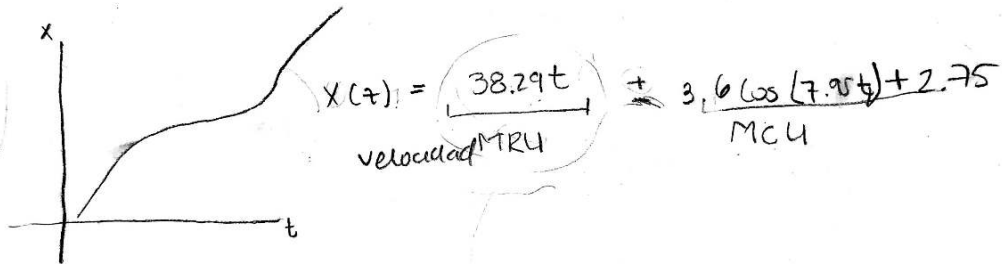 x
X(t) = 38.29t + 3.6 cos(7.95t) + 2.75
velocidad MRU
MCU
t